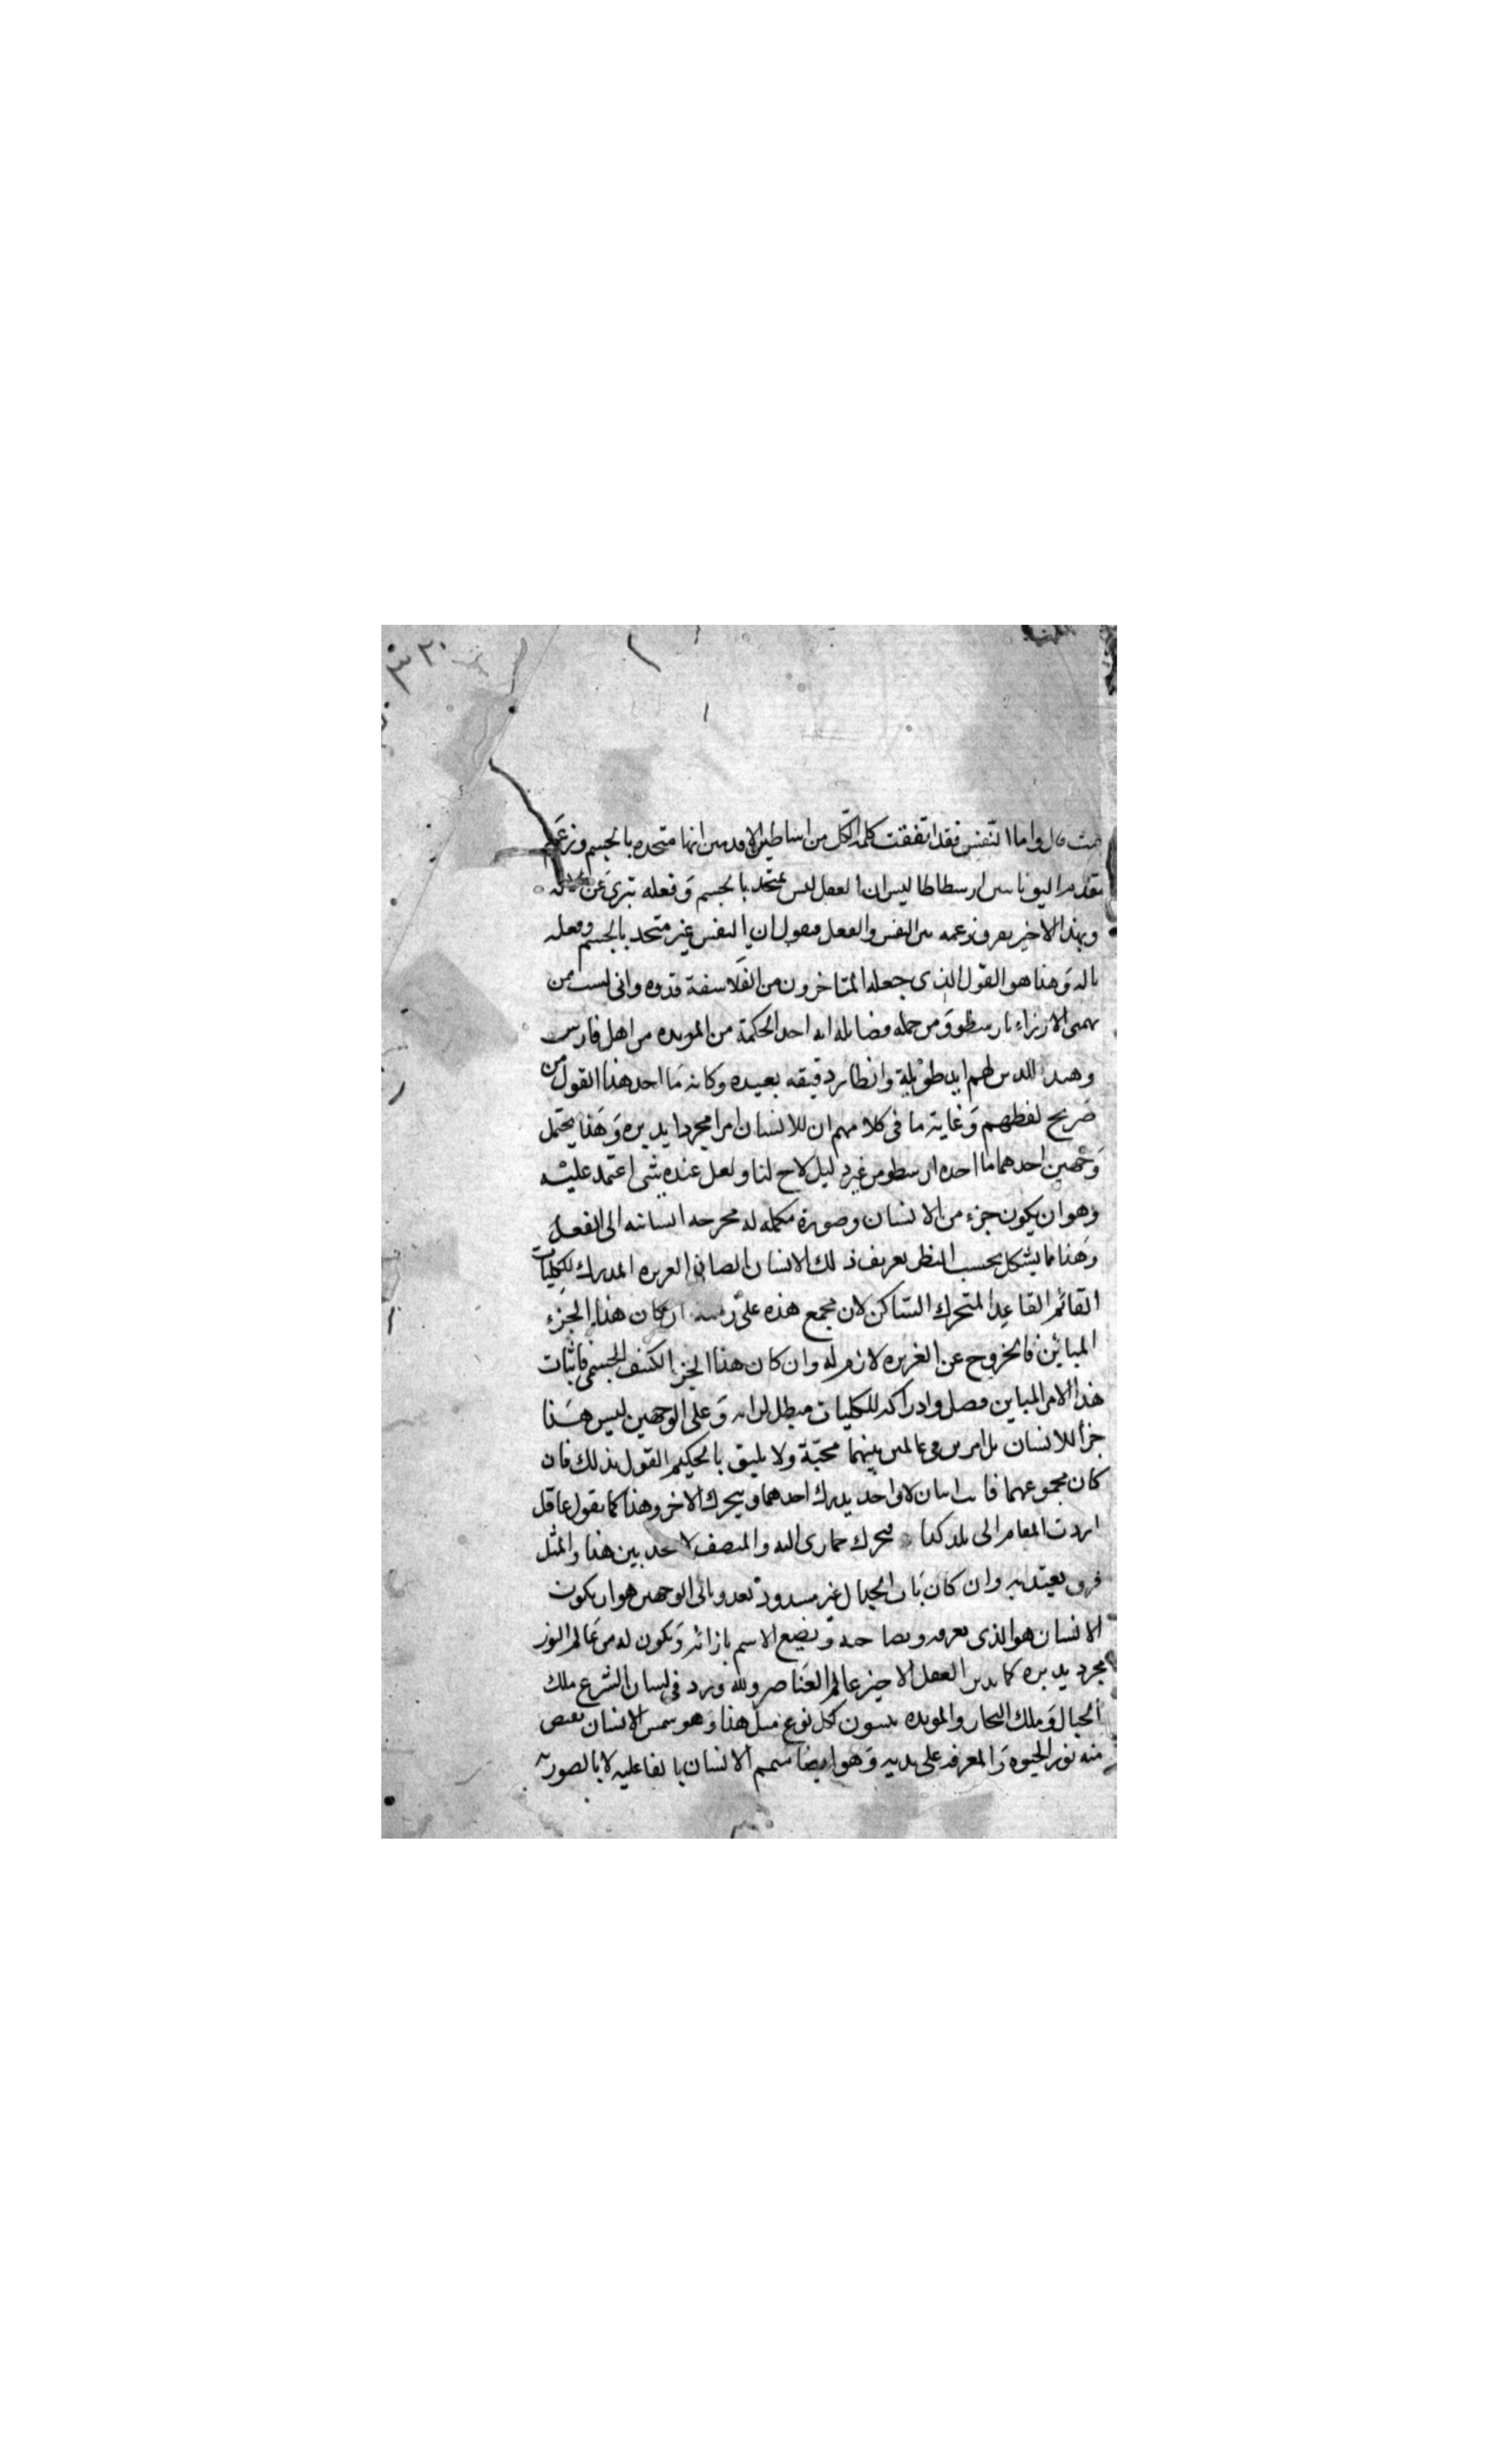 ٣٢٠
حيث قال واما النفس فقد اتفقت كلمة الكل من اساطين الاقدمين انها متحده بالجسم وزعم
مقدم اليونانيين ارسطاطاليس ان العقل ليس بمتحد بالجسم وفعله تبرى عن
وبهذا الاخير يفرق زعمه بين النفس والعقل فيقول ان النفس غير متحد بالجسم وفعله
باله وهذا هو القول الذى جعله المتاخرون من الفلاسفة قدوه وانى لست من
الازراء بارسطو ومن جمله فضايله انه اخذ الحكمة من المويده من اهل فارس
الذين لهم ايد طويلة وانظار دقيقه بعيده وكانه ما اخذ هذا القول من
صريح لفظهم وغاية ما فى كلامهم ان للانسان امرا مجردا يدبره وهذا يحتمل
وجهين احدهما ما اخذه ارسطو من غير دليل لاح لنا ولعل عنده شى اعتمد عليه
وهو ان يكون جزء من الانسان وصورة مكمله له مخرجه انسانيته الى الفعل
وهذا مما يشكل بحسب النظر تعريف ذلك الانسان المدرك للكليات
القائم القاعد المتحرك الساكن لان مجمع هذه على ان كان هذا الجزء
المباين فالخروج عن الغريزه لازم له وان كان هذا الجزء الكثف الجسمى فاثبات
هذا الامر المباين فصل وادراكه للكليات مبطل لرايه وعلى الوجهين ليس هذا
جزأ للانسان بل امرين فى عالمين بينهما محبة ولا يليق بالحكيم القول بذلك فان
كان مجموعهما فانسانان لا واحد يدرك احدهما ويتحرك الاخر وهذا كما يقول عاقل
اردت المقام الى بلد كذا فتحرك حمارى اليه والمنصف لا يجد بين هذا والمثل
فرق يعتد به وان كان باب الجدال غير مسدود بعد وثانى الوجهين هو ان يكون
الانسان هو الذى نعرفه ونصاحبه ونضع الاسم بازائه ويكون له من عالم النور
مجرد يدبره كما يدبر العقل الاخير عالم العناصر ولله ورد فى لسان الشرع ملك
الجبال وملك البحار والمويده يثبتون لكل نوع مثل هذا وهو شمس الانسان يفيض
منه نور الحيوه والمعرفه على بدنه وهو ايضا متمم الانسان بالفاعليه لا بالصوريه